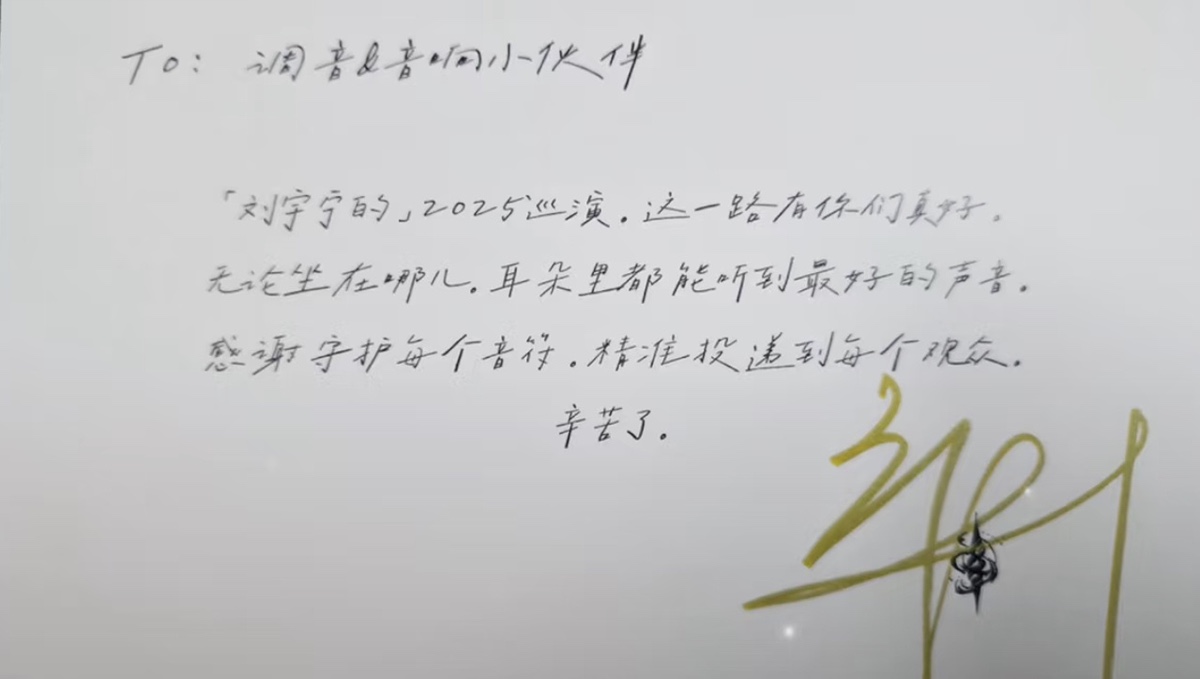 To: 调音&音响小伙伴
「刘宇宁的」2025巡演.这一路有你们真好.
无论坐在哪儿.耳朵里都能听到最好的声音.
感谢守护每个音符.精准投递到每个观众.
辛苦了.